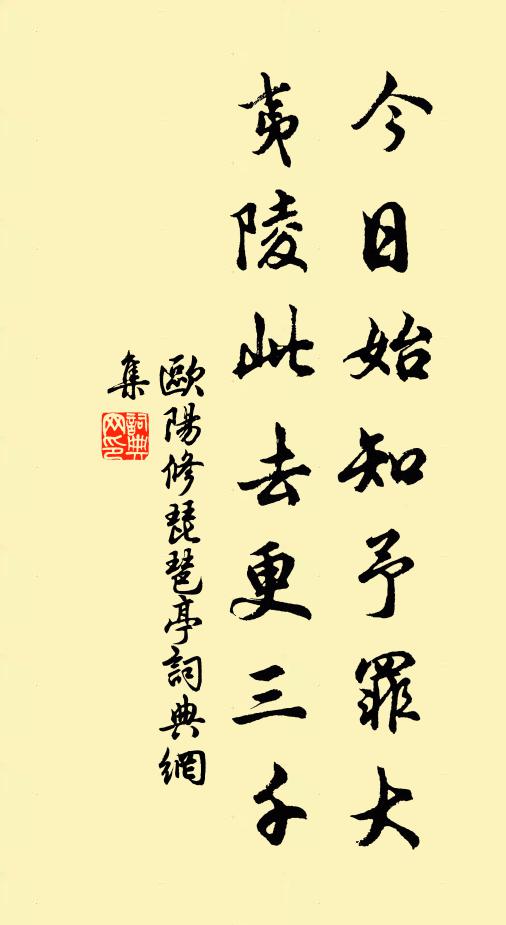 今日始知予罪大
夷陵此去更三千
歐陽修琵琶亭詞典網
集
詞典
网印